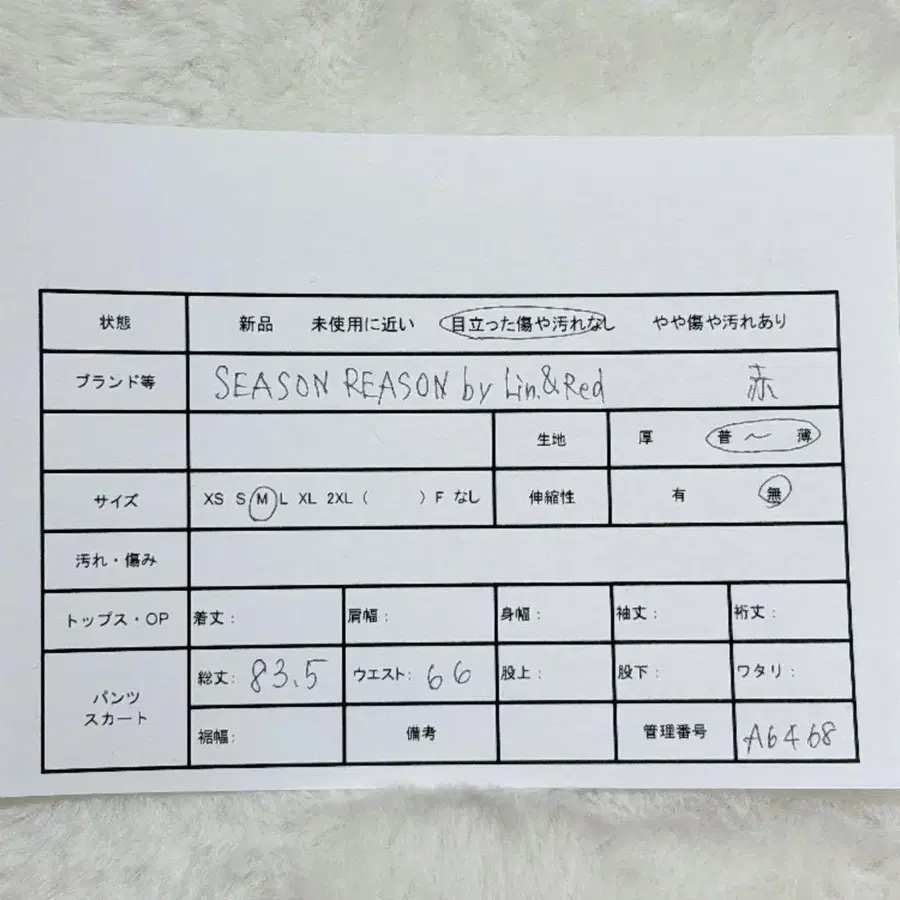 状態 新品 未使用に近い 目立った傷や汚れなし やや傷や汚れあり
ブランド等 SEASON REASON by Lin.&Red 赤
生地 厚 普 〜 薄
サイズ XS S M L XL 2XL ( ) F なし 伸縮性 有 無
汚れ・傷み
トップス・OP 着丈: 肩幅: 身幅: 袖丈: 裄丈:
パンツ
スカート
総丈: 83.5 ウエスト: 66 股上: 股下: ワタリ:
裾幅: 備考 管理番号 A6468